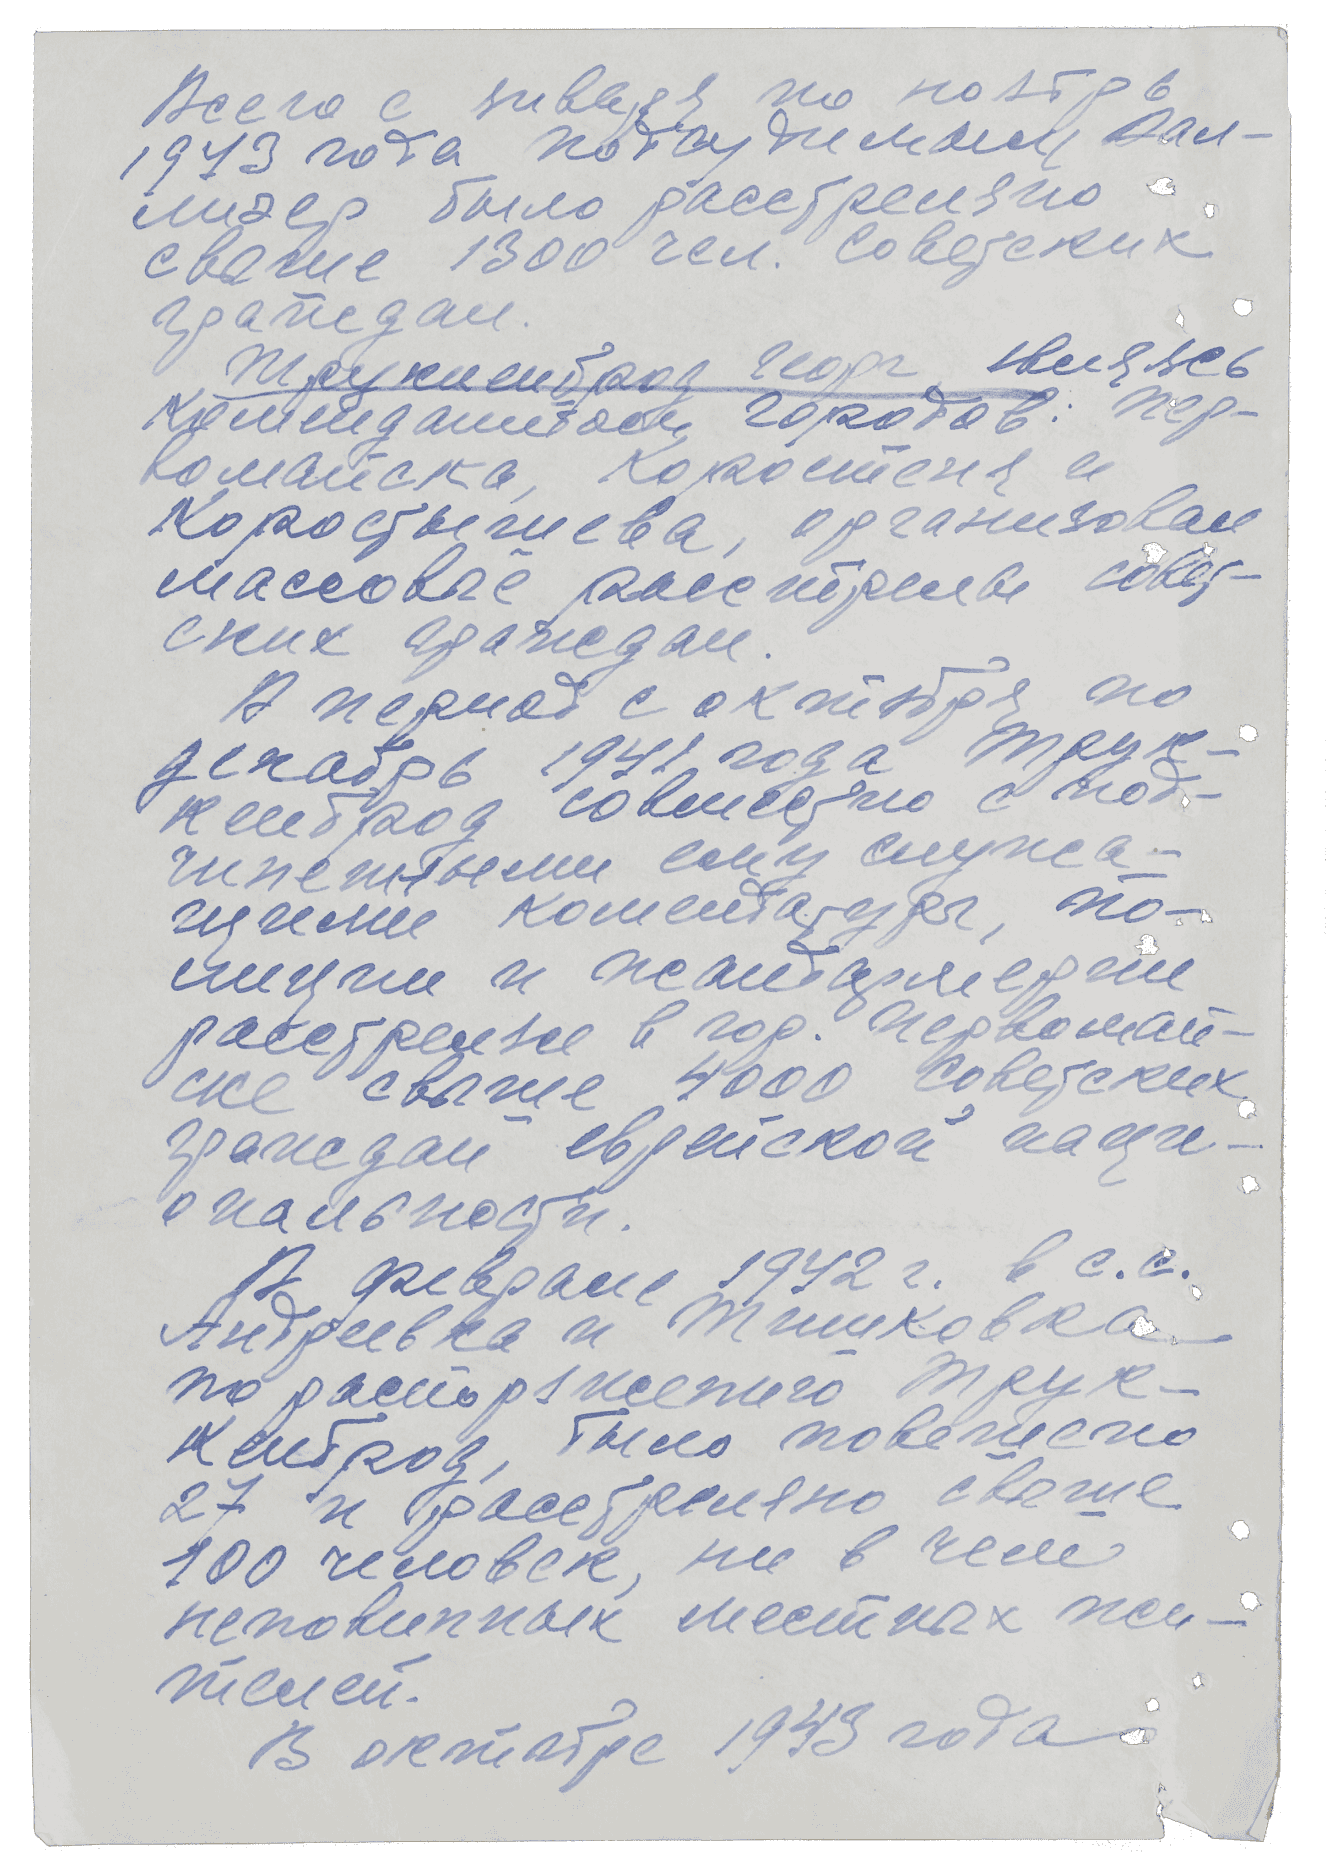 Всего с января по ноябрь
1943 года подсудимым Вал-
лизер было расстреляно
свыше 1300 чел. советских
граждан.
Труккенброд Георг, являясь
комендантом городов: Пер-
вомайска, Коростеня и
Коростышева, организовал
массовые расстрелы совет-
ских граждан.
В период с октября по
декабрь 1941 года Трук-
кенброд совместно с под-
чиненными ему служа-
щими комендатуры, по-
лиции и жандармерии
расстрелял в гор. Первомай-
ске свыше 4000 советских
граждан еврейской наци-
ональности.
В феврале 1942 г. в с.с.
Андреевка и Тишковка
по распоряжению Трук-
кенброд, было повешено
27 и расстреляно свыше
100 человек, ни в чем
неповинных местных жи-
телей.
В октябре 1943 года